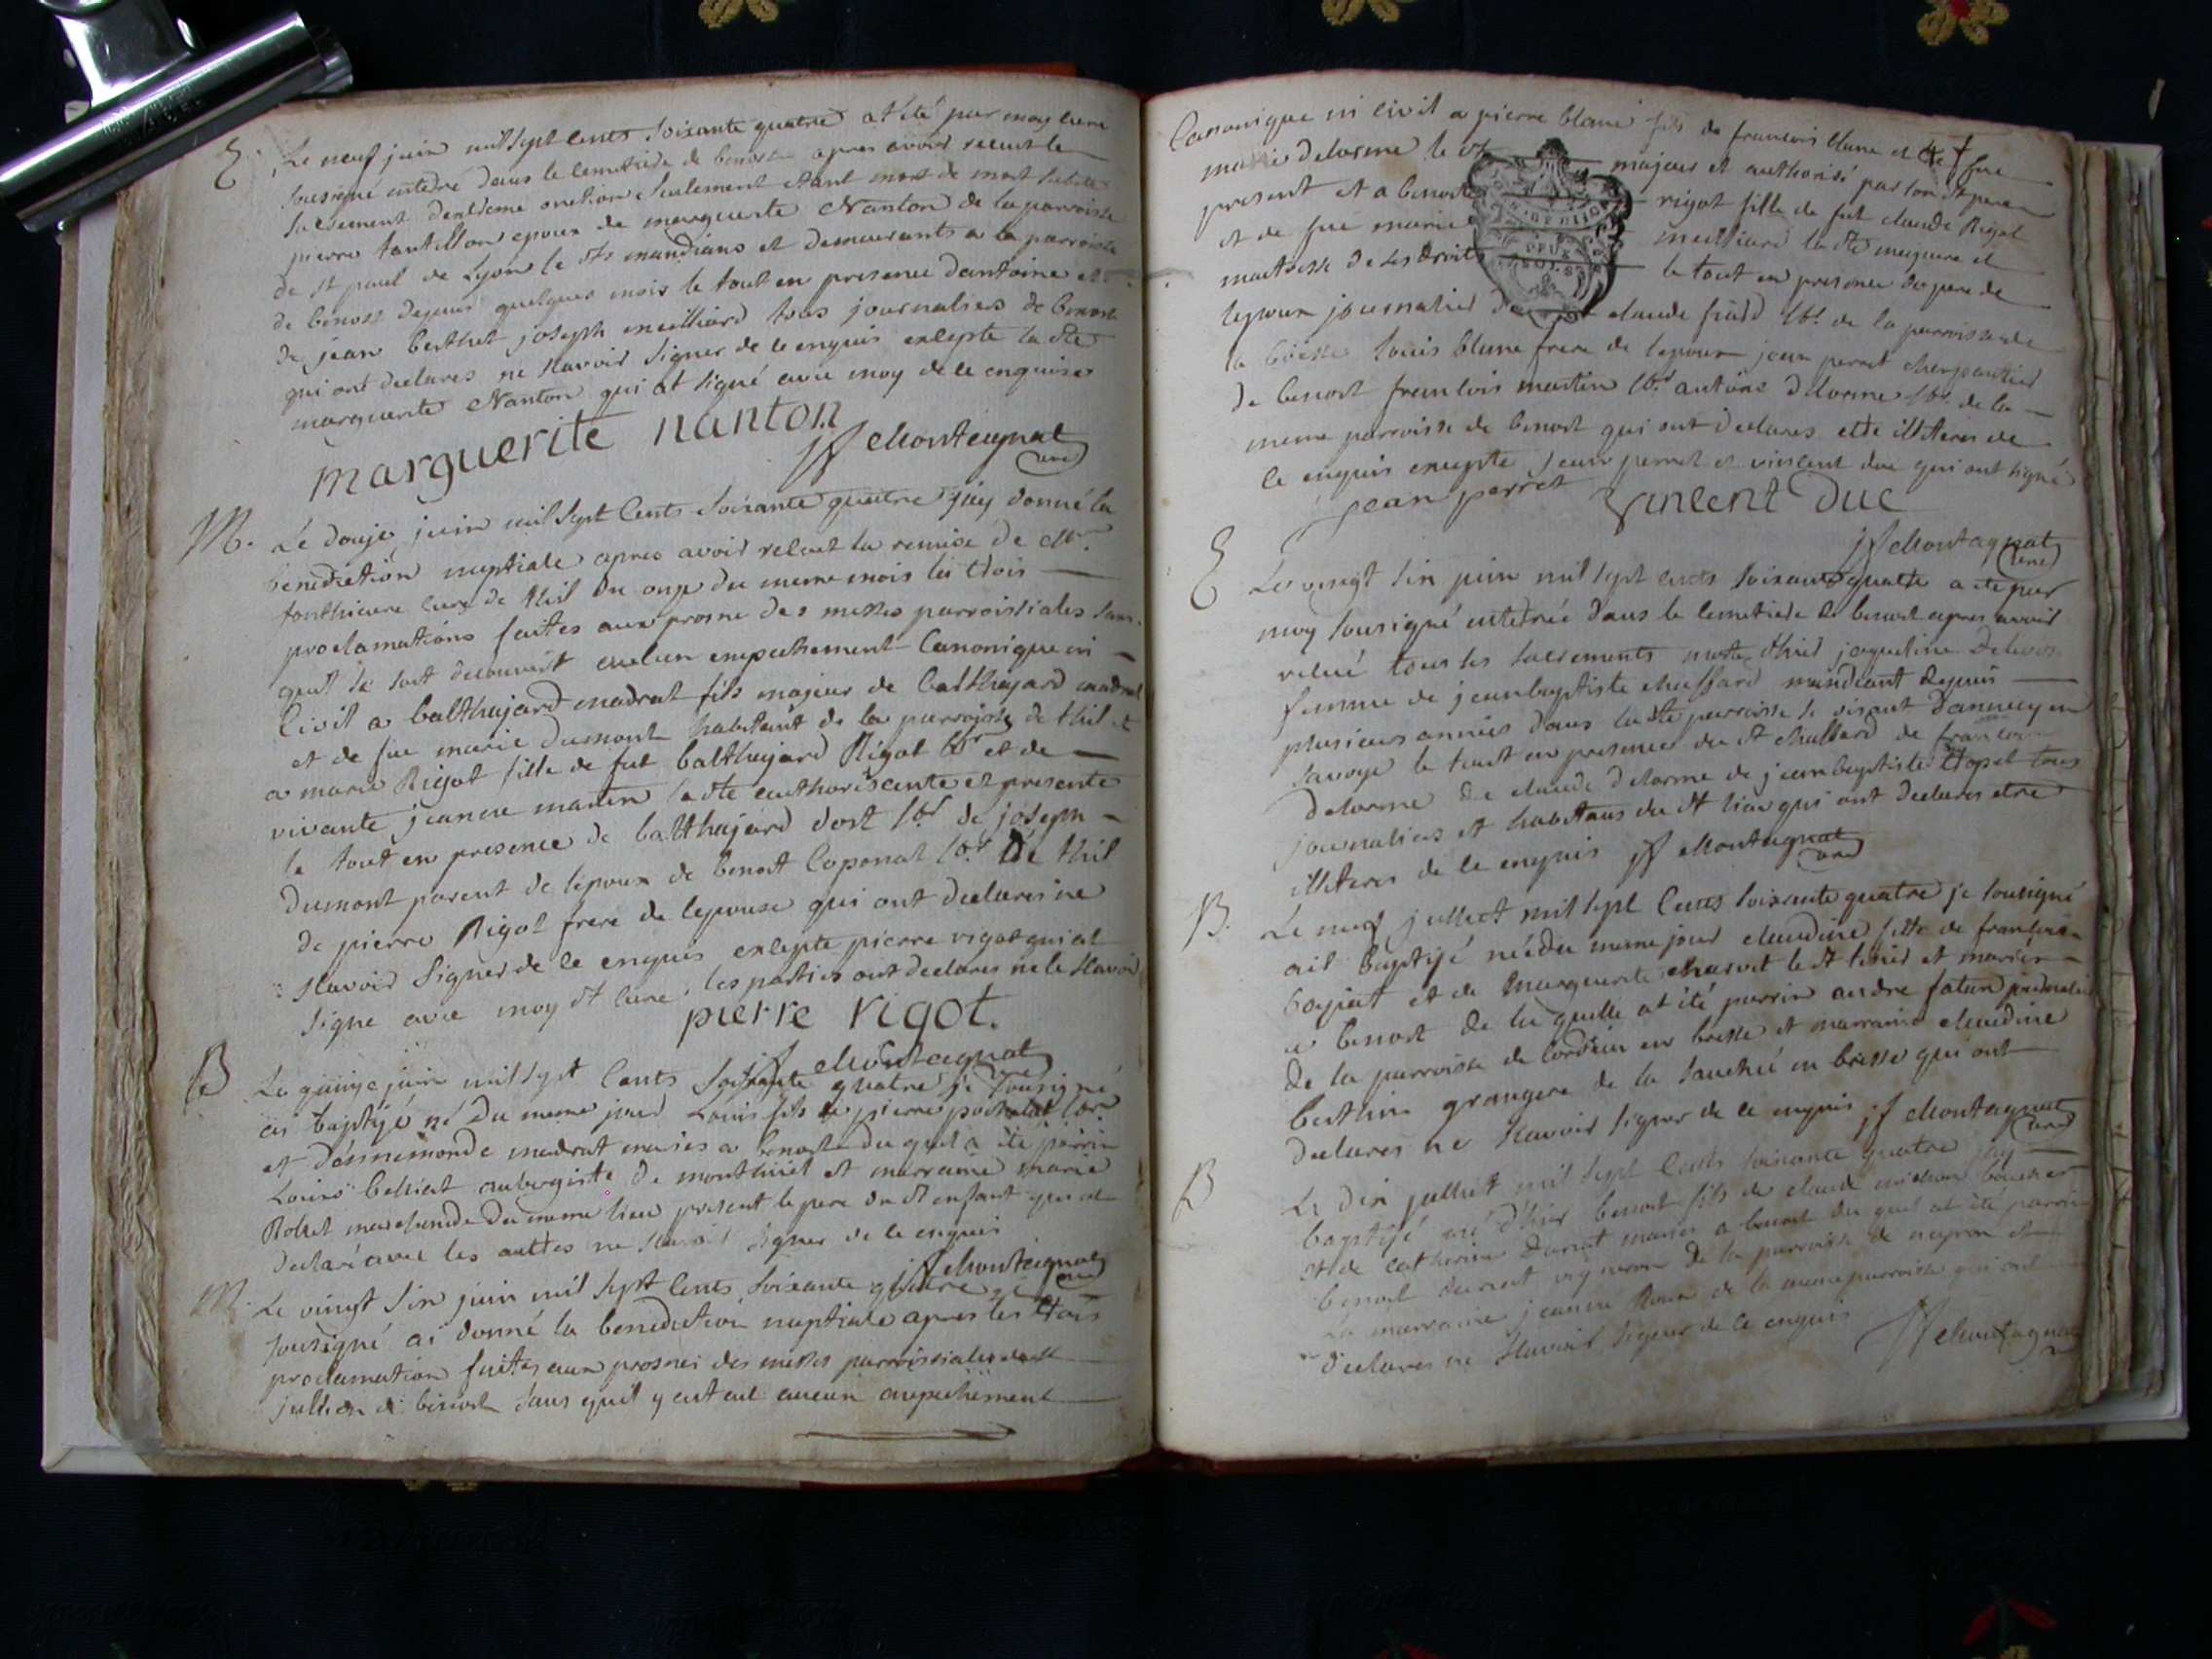 E. Le neuf juin mil sept cents soixante quatre at été par moy curé
sousigné enterré dans le cemetiere de benost apres avoir receut le
sacrement dextreme onction seulement etant mort de mort subite
pierre tantillon epoux de marguerite Nanton de la parroisse
de st paul de Lyon le dts mandians et demeurants a la parroisse
de benost depuis quelques mois le tout en presence dantoine et
de jean berthet joseph meilliard tous journaliers de benost
qui ont declarés ne sçavoir signer de ce enquis excepte la dte
marguerite Nanton qui at signé avec moy de ce enquise
marguerite nanton
jf Montagnat
curé
M. Le douze juin mil sept cents soixante quatre jay donné la
benediction nuptiale apres avoir receut la remise de Mr
curé de thil du onze du meme mois les trois
proclamations faites aux prosne des messes parroissiales sans
quil se soit decouvert aucun empechement Canonique ni
Civil a balthazard madrat fils majeur de balthazard madrat
et de fue marie dumont habitant de la parroisse de thil et
a marie Rigot fille de fut balthazard Rigot lbr et de
vivante jeanne martin la dte authorisante et presente
le tout en presence de balthazard dost lbr de joseph
dumont parent de lepoux de benoit Coponat lbr de thil
de pierre Rigot frere de lepouse qui ont declarés ne
sçavoir signer de ce enquis excepte pierre rigot qui at
signe avec moy dt curé. les parties ont declarés ne le sçavoir
pierre rigot.
jf Montagnat
curé
B Le quinze juin mil sept Cents soixante quatre je sousigné
ai baptizé né du meme jour Louis fils de pierre lbr
et dennemonde madrat mariés a benost du quel a été parrin
Louis belliat aubergiste de montluel et marraine marie
Robet marchande du meme lieu present le pere du dt enfant qui at
declaré avec les autres ne sçavoir signer de ce enquis
jf Montagnat
curé
M. Le vingt six juin mil sept Cents soixante quatre je
sousigné ai donné la benediction nuptiale apres les trois
proclamation faites aux prosnes des messes parroissiales
de benost sans quil y eut eut aucun empechement
Canonique ni civil a pierre blanc fils de francois blanc et de fue
marie delorme le dt majeur et authorisé par son dt pere
present et a benoite rigot fille de fut claude Rigot
et de fue marie meilliard la dte majeure et
maitresse de ses droits le tout en presence du pere de
lepoux journalier de claude lbr de la parroisse de
la boisse Louis blanc frere de lepoux jean perret charpantier
de benost francois martin lbr antoine delorme lbr de la
meme parroisse de benost qui ont declarés etre illiteres de
ce enquis excepte jean perret et vincent duc qui ont signé
jean perret vincent duc
jf Montagnat
curé
E Le vingt six juin mil sept cents soixante quatre a été par
moy sousigné enterrée dans le cemetiere de benost apres avoir
receu tous les sacrements morte dhier jaqueline
femme de jean baptiste chaffard mandiant depuis
plusieurs années dans la dte parroisse se disant dannecy en
savoye le tout en presence du dt chaffard de francois
delorme de claude delorme de jean baptiste tous
journaliers et habitans du dt lieu qui ont declarés etre
illiteres de ce enquis jf Montagnat
curé
B. Le neuf juillet mil sept Cents soixante quatre je sousigné
ait baptizé née du meme jour claudine fille de francois
bojat et de marguerite le dt mariés
a benost de la quelle at été parrin andre fatin journalier
de la parroisse de cordieu en bresse et marraine claudine
berthin grangere de la sauchié en bresse qui ont
declarés ne sçavoir signer de ce enquis jf Montagnat
curé
B Le dix juillet mil sept Cents soixante quatre jay
baptizé né dhier benoit fils de claude michon
et de catherine mariés a benost du quel at été parrin
benoit vigneron de la parroisse de et
la marraine jeanne Roux de la meme parroisse qui ont
declarés ne sçavoir signer de ce enquis
jf Montagnat